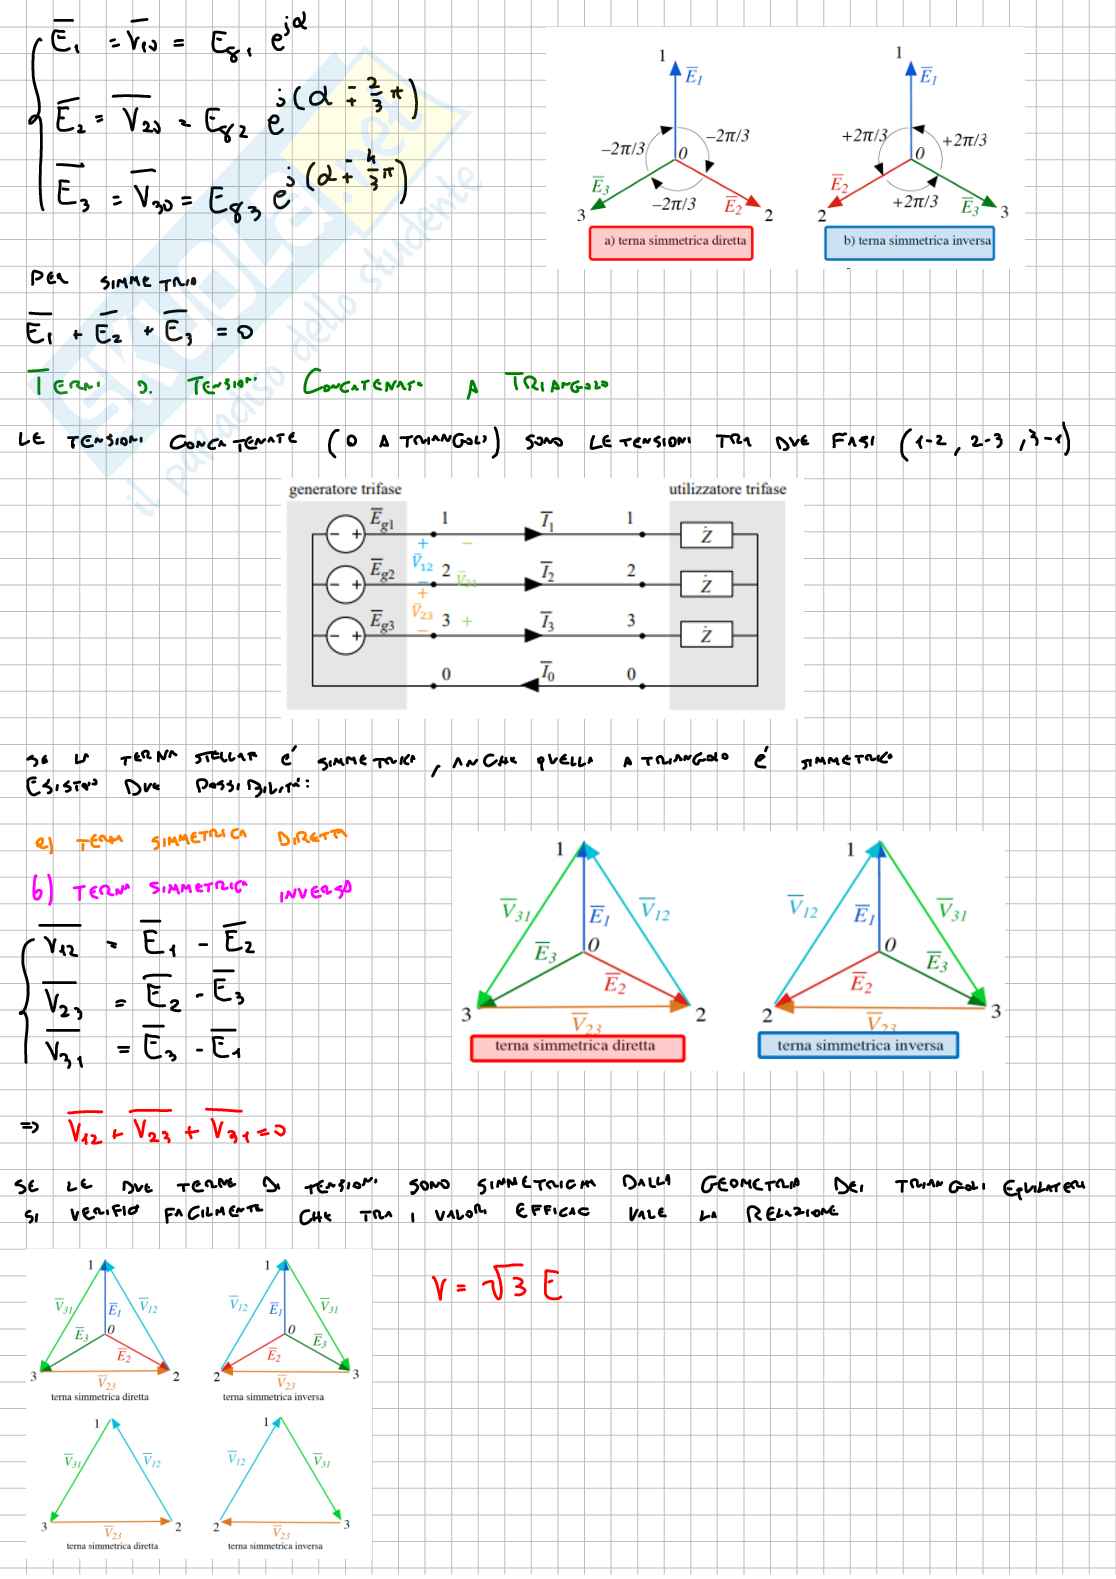 E̅₁ = V̅₁₀ = E_g₁ e^{jα}
E̅₂ = V̅₂₀ = E_g₂ e^{j(α ∓ 2/3 π)}
E̅₃ = V̅₃₀ = E_g₃ e^{j(α ∓ 4/3 π)}
1 E̅₁ −2π/3 −2π/3 0 E̅₃ −2π/3 E̅₂ 3 2
a) terna simmetrica diretta
1 E̅₁ +2π/3 +2π/3 0 E̅₂ +2π/3 E̅₃ 2 3
b) terna simmetrica inversa
PER SIMMETRIA
E̅₁ + E̅₂ + E̅₃ = 0
TERNA DI TENSIONI CONCATENATE A TRIANGOLO
LE TENSIONI CONCATENATE (O A TRIANGOLO) SONO LE TENSIONI TRA DUE FASI (1-2, 2-3, 3-1)
generatore trifase utilizzatore trifase
− + E̅g1 1 I̅₁ 1 Ż
+ −
V̅₁₂
− + E̅g2 2 I̅₂ 2 Ż
− +
V̅₂₃
− + E̅g3 − 3 + I̅₃ 3 Ż
0 I̅₀ 0
SE LA TERNA STELLATA É SIMMETRICA, ANCHE QUELLA A TRIANGOLO É SIMMETRICA
ESISTONO DUE POSSIBILITÁ:
a) TERNA SIMMETRICA DIRETTA
b) TERNA SIMMETRICA INVERSA
V̅₁₂ = E̅₁ - E̅₂
V̅₂₃ = E̅₂ - E̅₃
V̅₃₁ = E̅₃ - E̅₁
1 V̅₃₁ E̅₁ V̅₁₂ 0 E̅₃ E̅₂ 3 V̅₂₃ 2
terna simmetrica diretta
1 V̅₁₂ E̅₁ V̅₃₁ 0 E̅₂ E̅₃ 2 V̅₂₃ 3
terna simmetrica inversa
=> V̅₁₂ + V̅₂₃ + V̅₃₁ = 0
SE LE DUE TERNE DI TENSIONI SONO SIMMETRICHE DALLA GEOMETRIA DEI TRIANGOLI EQUILATERI
SI VERIFICA FACILMENTE CHE TRA I VALORI EFFICACI VALE LA RELAZIONE
V = √3 E
1 V̅₃₁ E̅₁ V̅₁₂ 0 E̅₃ E̅₂ 3 V̅₂₃ 2
terna simmetrica diretta
1 V̅₁₂ E̅₁ V̅₃₁ 0 E̅₂ E̅₃ 2 V̅₂₃ 3
terna simmetrica inversa
1 V̅₃₁ V̅₁₂ 3 V̅₂₃ 2
terna simmetrica diretta
1 V̅₁₂ V̅₃₁ 2 V̅₂₃ 3
terna simmetrica inversa
SKUOLA.net
il paradiso dello studente